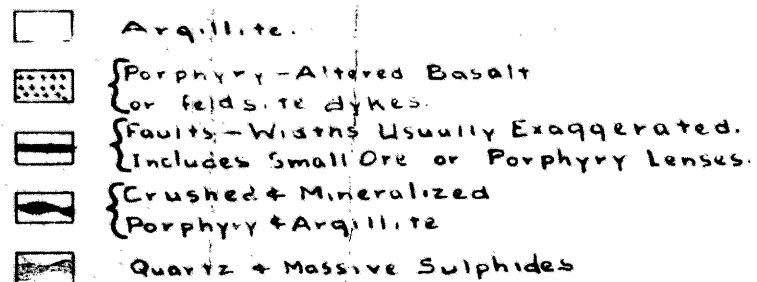 Argillite.
Porphyry - Altered Basalt
or feldsite dykes.
Faults - Widths Usuully Exaggerated.
Includes Small Ore or Porphyry Lenses.
Crushed & Mineralized
Porphyry & Argillite
Quartz & Massive Sulphides